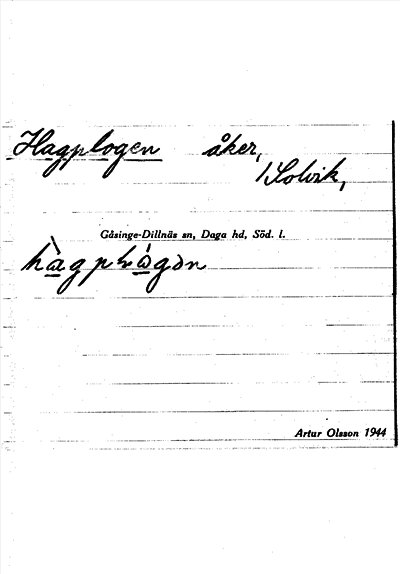 Hagplogen åker,
1/Solvik,
Gåsinge-Dillnäs sn, Daga hd, Söd. l.
Artur Olsson 1944